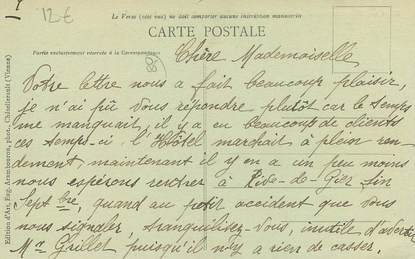 12€
Le Verso (côté vue) ne doit comporter aucune inscription manuscrite
CARTE POSTALE
Partie exclusivement réservée à la Correspondance
80
Chère Mademoiselle
Votre lettre nous a fait beaucoup plaisir,
je n'ai pû vous répondre plutôt car le temps
me manquait, il y a eu beaucoup de clients
ces temps-ci l'Hôtel marchait à plein ren-
dement, maintenant il y en a un peu moins
nous espérons rentrer à Rive-de-Gier fin
Sept bre, quand au petit accident que vous
nous signaler, tranquilisez-vous, inutile d'avertir
Mr Grillet puisqu'il n'y a rien de casser.
Edition d'Art, Eug. Arambourou, phot., Châtellerault (Vienne)